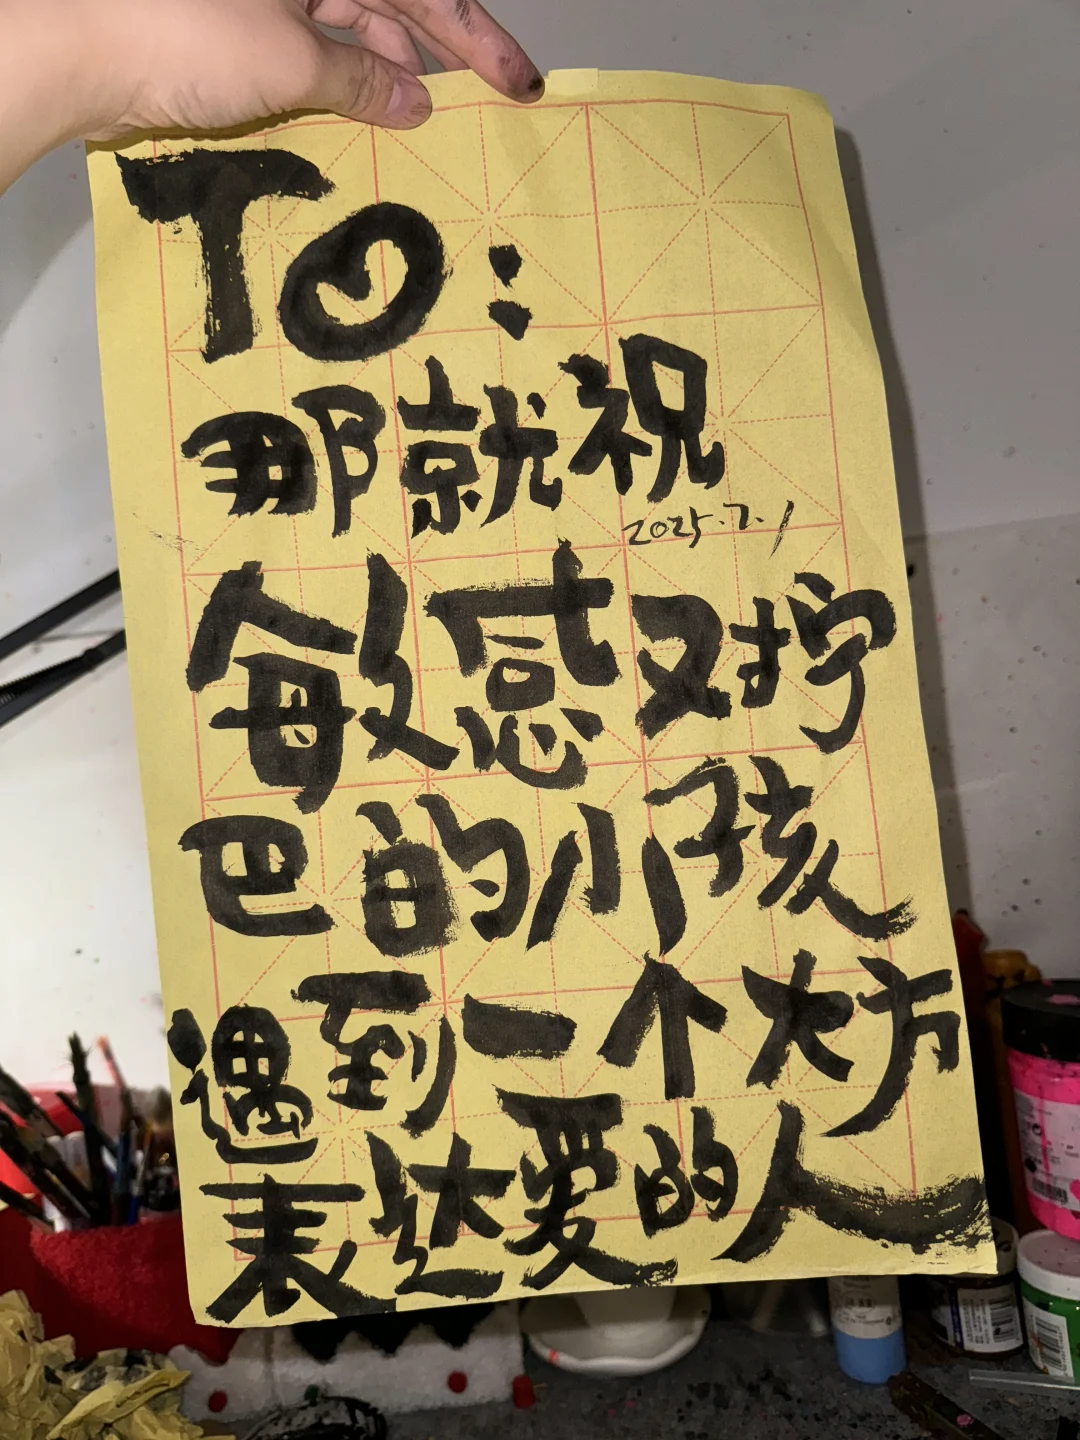 To:
那就祝
2025.7.1
敏感又拧
巴的小孩
遇到一个大方
表达爱的人